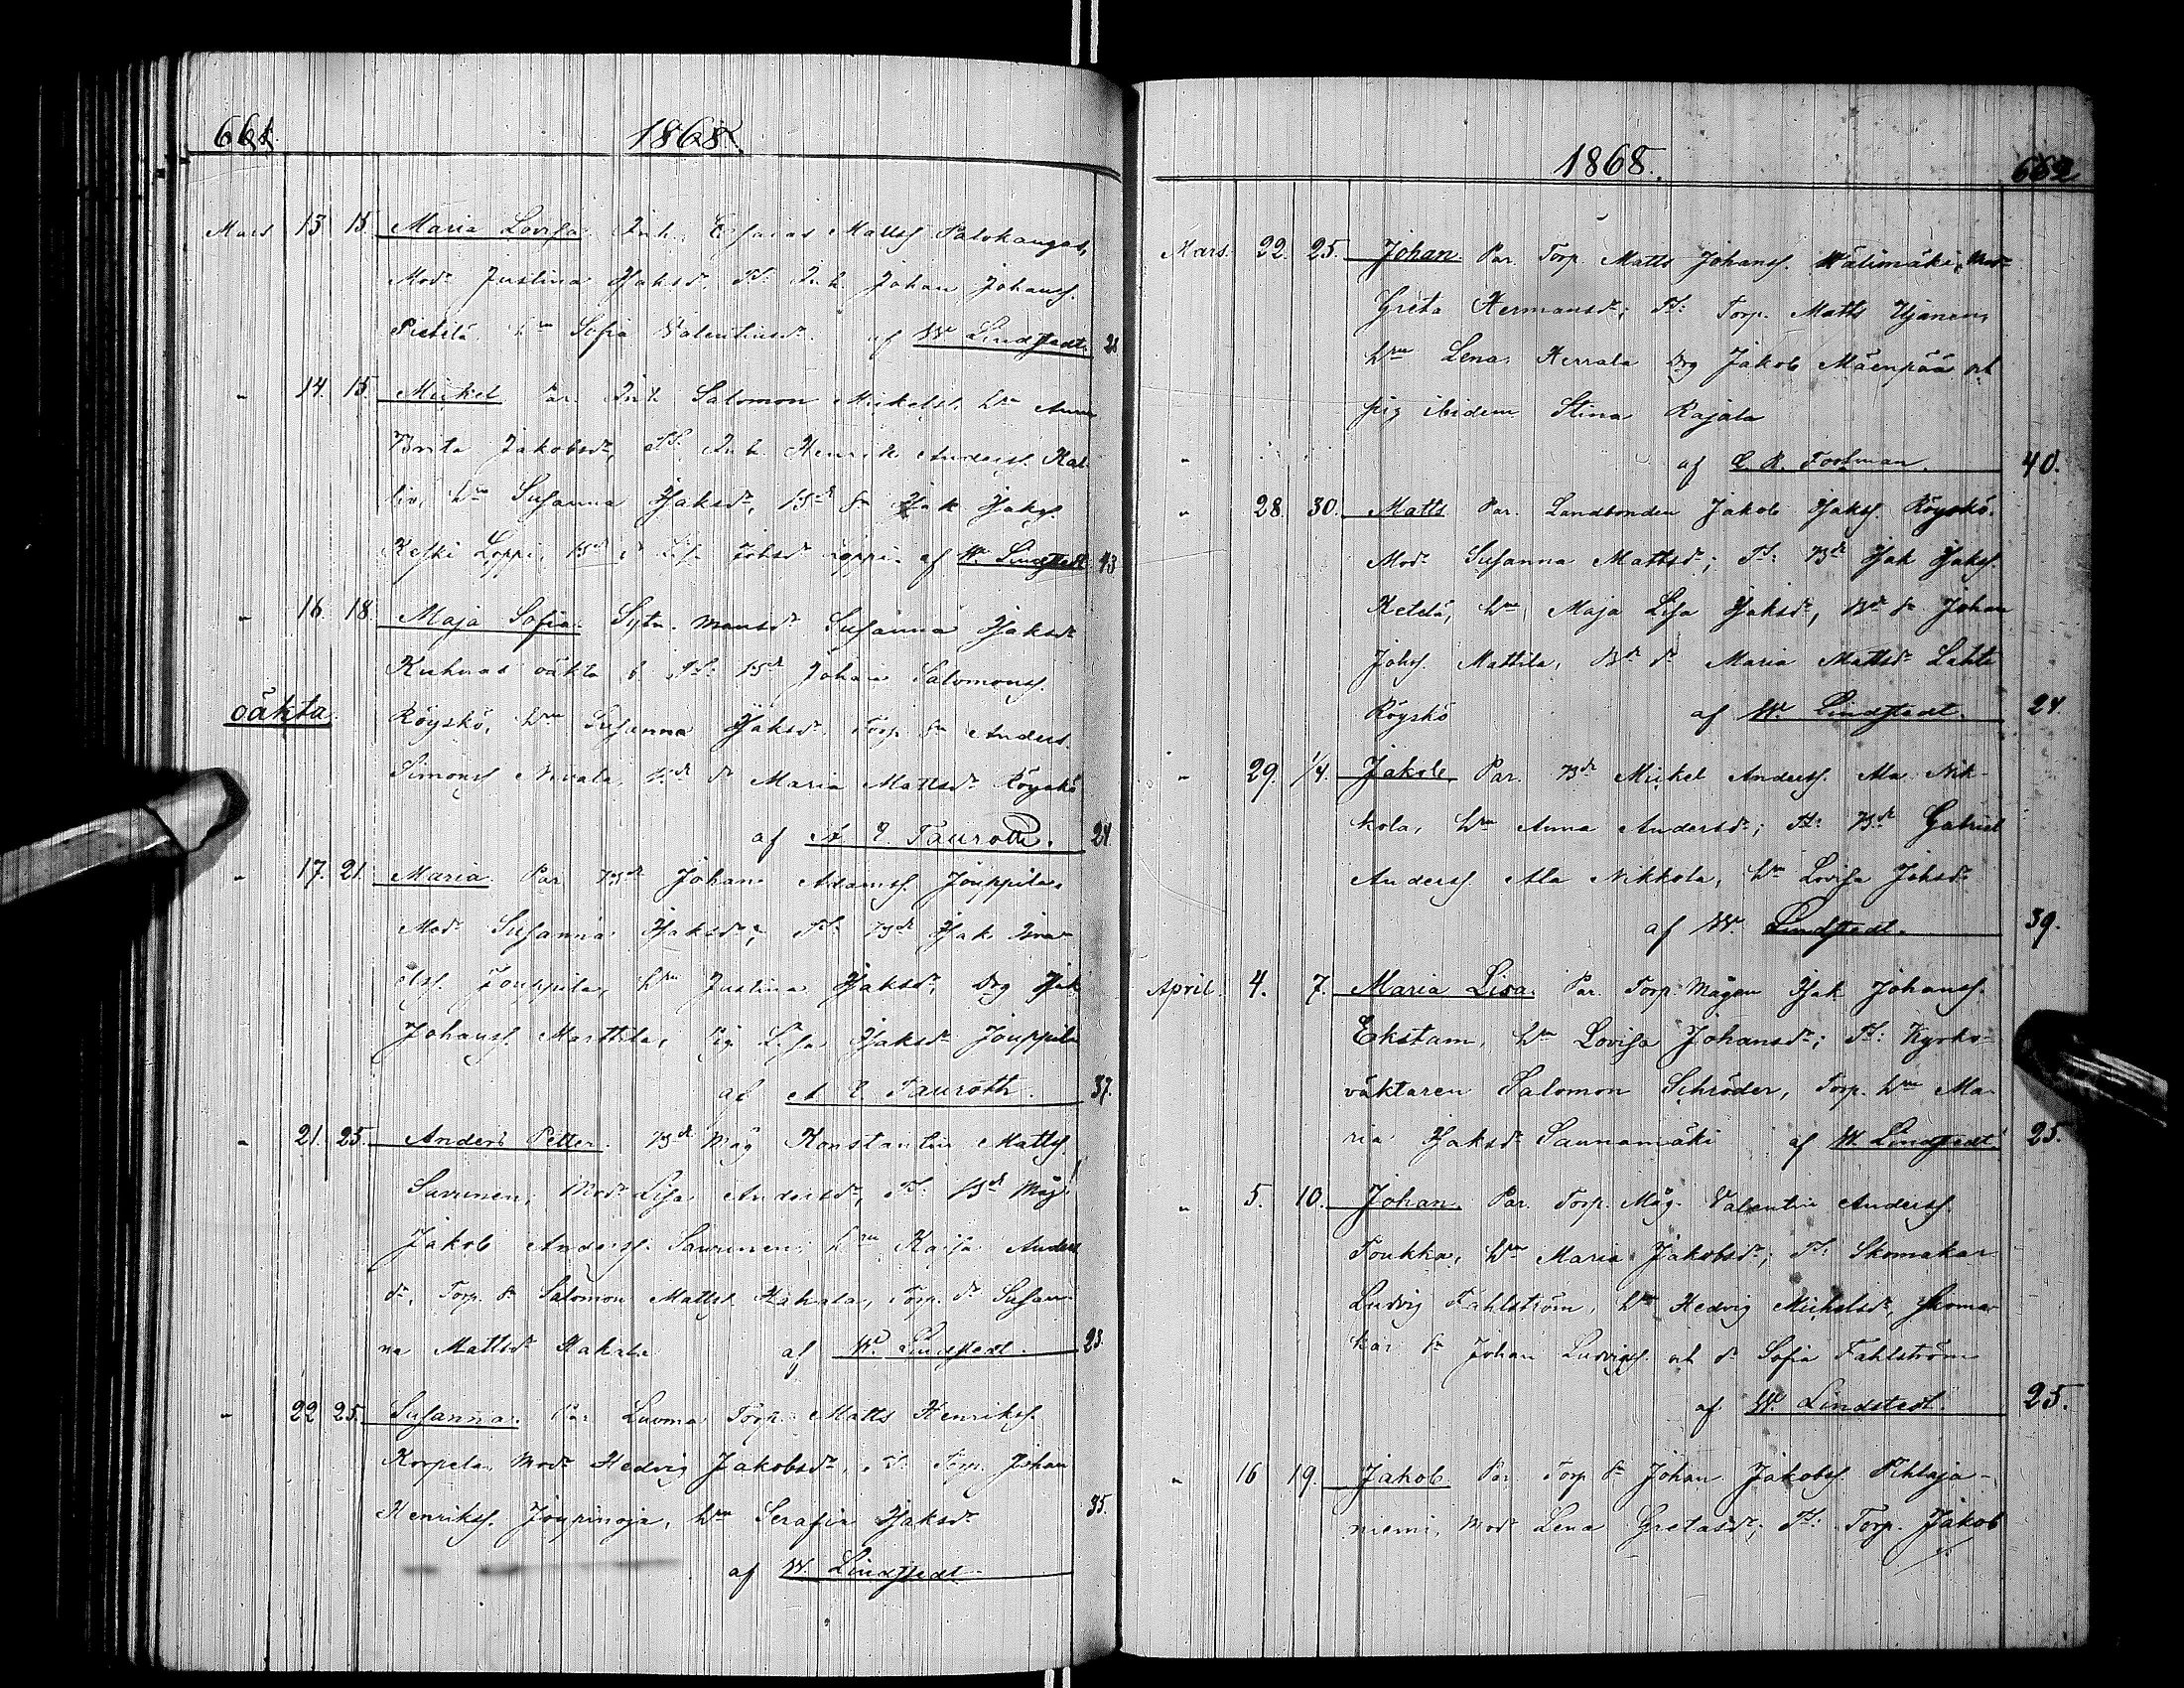 661.
1868.
Mars 13 15. Maria Lovisa. Inh. Esaias Mattss. Palokangas,
Modr Justina Isaksdr. Tt: Inh. Johan Johanss.
Pietilä hru Sofia Valentinsdr. af W. Lindstedt. 28
" 14. 15. Mickel Par. Inh Salomon Mickelss. hru Anna
Brita Jakobsdr, Tt: Inh. Henrik Anderss. Kal
lio, hru Susanna Isaksdr, Bdr sn Isak Isakss.
Keski Loppi, Bdr dr Lisa Johsdr Loppi. af W. Lindstedt 43
" 16. 18. Maja Sofia. Sytn. mansdr Susanna Isaksdr
Kuhnas oäkta b. Tt: Bdr Johan Salomonss.
oäkta. Röyskö, hru Susanna Isaksdr. Torp. sn Anders
Simonss Nevala, Bdr dr Maria Mattsdr Röyskö
af A. E. Tauroth. 24.
" 17. 21. Maria. Par. Bdr Johan Adamss. Jouppila.
Modr Susanna Isaksdr; Tt: Bdr Isak
elss. Jouppila, hru Justina Isaksdr, Drg Isak
Johanss. Marttila, Pig. Lisa Isaksdr Jouppila
af A. E. Tauroth. 37.
" 21. 25. Anders Petter. Bdr Måg Konstantin Mattss.
Savunen, Modr Lisa Andersdr, Tt: Bdr Måg
Jakob Anderss. Saurunen, hru Kajsa Anders
dr, Torp. sn Salomon Mattss. Hakala, Torp. dr Susan-
na Mattsdr Hakala af W. Lindstedt. 23.
" 22 25. Susanna. Par Luoma Torp. Matts Henrikss.
Korpela, Modr Hedvig Jakobsdr, Tt: Torp. Johan
Henrikss. Joupinoja, hru Serafia Isaksdr 35.
af W. Lindstedt
1868.
662
Mars. 22. 25. Johan. Par. Torp. Matts Johanss. Wälimäki, Modr
Greta Hermansdr; Tt: Torp. Matts Ujanen,
hru Lena Herrala Drg Jakob Mäenpää och
pig ibidem Stina Rajala
" af C. R. Forsman. 40.
" 28. 30. Matts Par. Landbonden Jakob Isakss. Röyskö.
Modr Susanna Mattsdr; Tt: Bdr Isak Isakss.
Ketelä, hru Maja Lisa Isaksdr, Bdr sn Johan
Johss. Mattila, Bdr dr Maria Mattsdr Lahti
Röyskö af W. Lindstedt. 24.
" 29. 1/4. Jakob Par. Bdr Mickel Anderss. Ala Nik-
kola, hru Anna Andersdr; Tt: Bdr Gabriel
Anderss. Ala Nikkola, hru Lovisa Johsdr
af W. Lindstedt. 39.
April. 4. 7. Maria Lisa. Par. Torp. Mågen Isak Johanss.
Ekstam, hru Lovisa Johansdr; Tt: Kyrko-
väktaren Salomon Schröder, Torp. hru Ma-
ria Isaksdr Saunamäki af W. Lindstedt 25.
" 5. 10. Johan. Par. Torp. Måg. Valentin Anderss.
Toukka, hru Maria Jakobsdr; Tt: Skomakar
Ludvig Fahlström, hru Hedvig Mickelsdr, Skoma-
kar sn Johan Ludvigss. och dr Sofia Fahlström
af W. Lindstedt. 25.
" 16 19. Jakob Par. Torp. sn Johan Jakobss. Pihlaja-
niemi, Modr Lena Gretasdr; Tt: Torp. Jakob